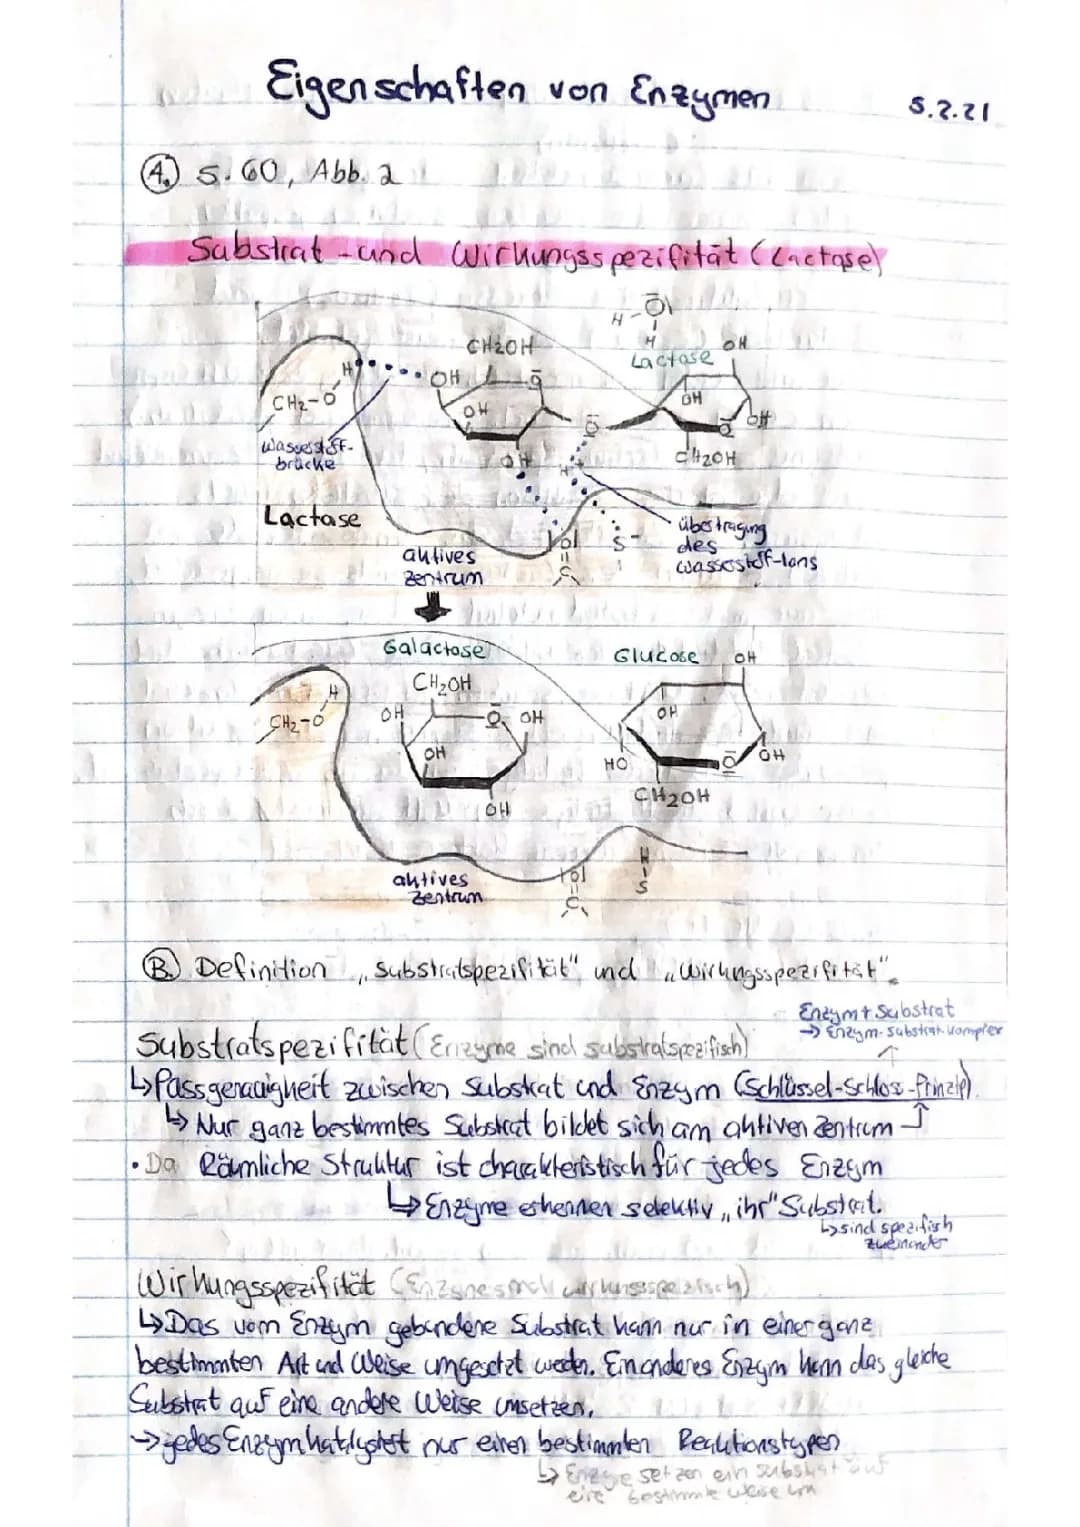 Eigenschaften von Enzymen
5.2.21
A. S. 60, Abb. 2
Substrat - und Wirkungsspezifität (Lactase)
H-O
H
CH2OH
Lactose
OH
H
OH
O
OH
CH2-O
OH
OH
O
O
Wasserstoff-
brücke
OH
H+
CH2OH
Lactase
aktives
Zentrum
|O|
C
S-
Übertragung
des
Wasserstoff-Ions
Galactose
Glukose
OH
H
CH2OH
CH2-O
OH
O
OH
OH
OH
HO
O
OH
OH
CH2OH
aktives
Zentrum
|O|
C
H
S
B. Definition „Substratspezifität" und „Wirkungsspezifität".
Enzym + Substrat
→ Enzym-Substrat-Komplex
Substratspezifität (Enzyme sind substratspezifisch)
↳ Passgenauigkeit zwischen Substrat und Enzym (Schlüssel-Schloss-Prinzip).
↳ Nur ganz bestimmtes Substrat bildet sich am aktiven Zentrum
• Da Räumliche Struktur ist charakteristisch für jedes Enzym
↳ Enzyme erkennen selektiv „ihr" Substrat.
↳ sind spezifisch
zueinander
Wirkungsspezifität (Enzyme sind wirkungsspezifisch)
↳ Das vom Enzym gebundene Substrat kann nur in einer ganz
bestimmten Art und Weise umgesetzt werden. Ein anderes Enzym kann das gleiche
Substrat auf eine andere Weise umsetzen.
→ jedes Enzym katalysiert nur einen bestimmten Reaktionstypen
↳ Enzyme setzen ein Substrat auf
eine bestimmte Weise um